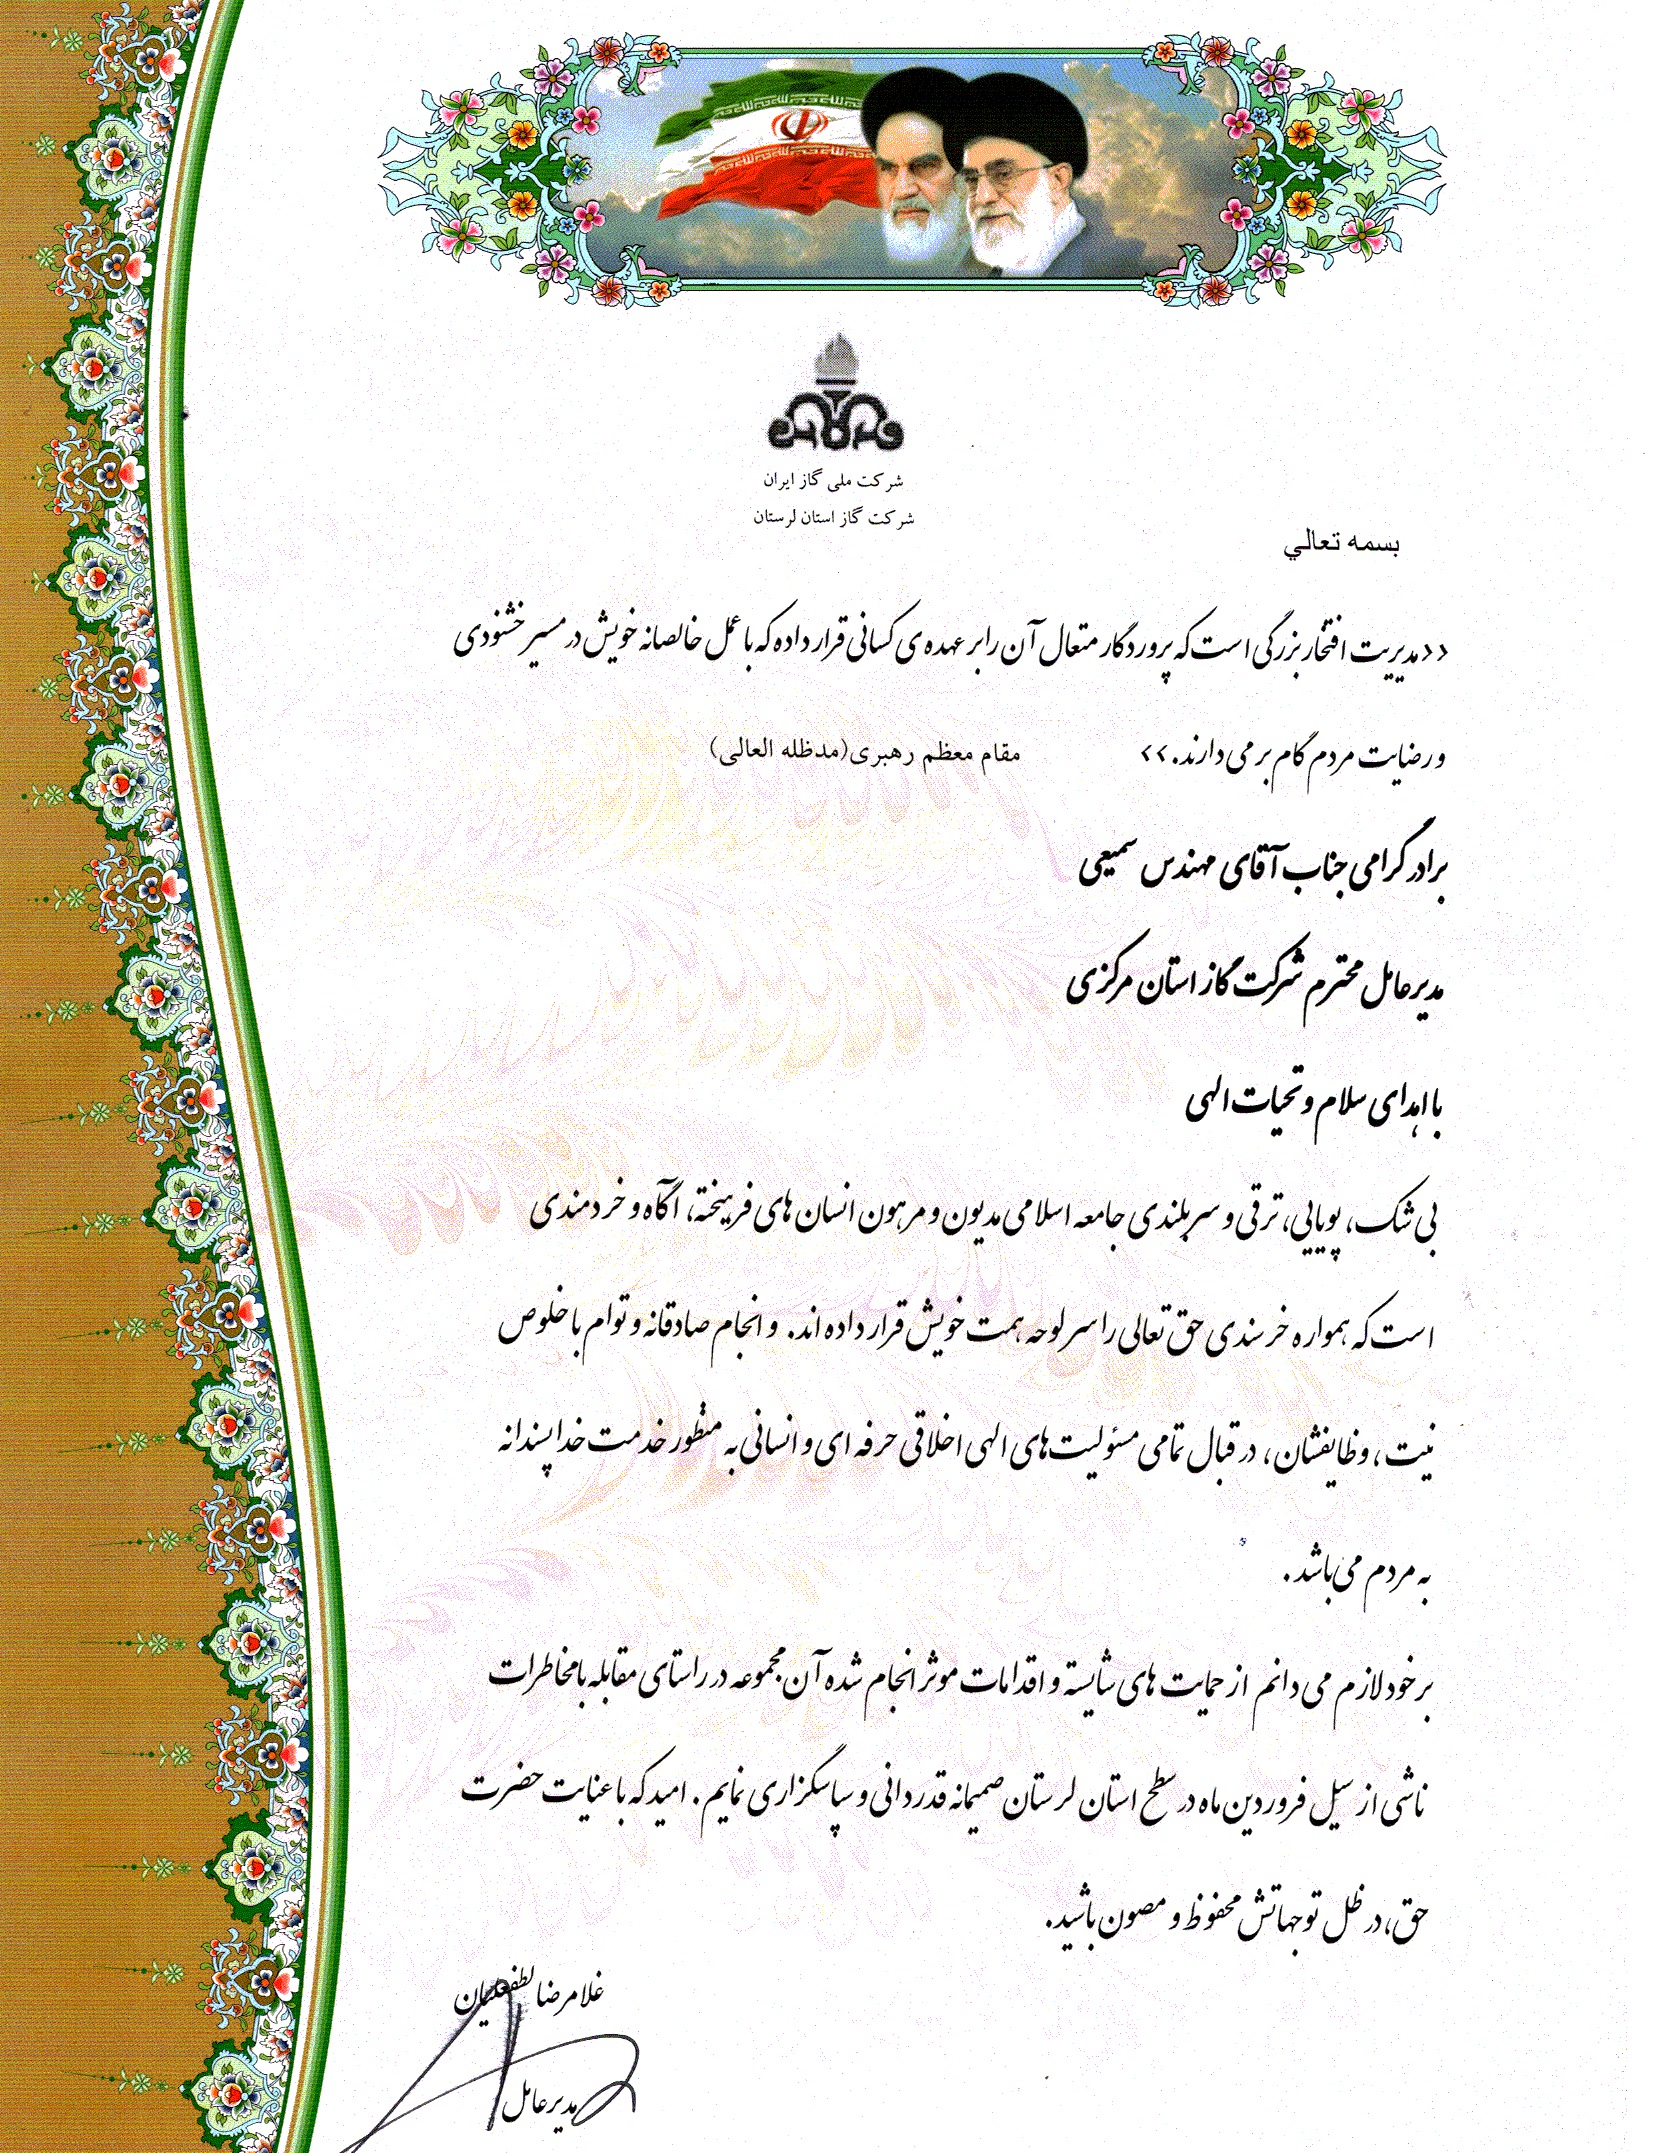 شرکت ملی گاز ایران
شرکت گاز استان لرستان
بسمه تعالي
<<مدیریت افتخار بزرگی است که پروردگار متعال آن را بر عهده ی کسانی قرار داده که با عمل خالصانه خویش در مسیر خشنودی
و رضایت مردم گام بر می دارند.>> مقام معظم رهبری(مدظله العالی)
برادر گرامی جناب آقای مهندس سمیعی
مدیرعامل محترم شرکت گاز استان مرکزی
با اهدای سلام و تحیات الهی
بی شک، پویایی، ترقی و سربلندی جامعه اسلامی مدیون و مرهون انسان های فریخته، آگاه و خردمندی
است که همواره خرسندی حق تعالی را سرلوحه همت خویش قرار داده اند. و انجام صادقانه و توام با خلوص
نیت، وظایفشان، در قبال تمامی مسئولیت های الهی اخلاقی حرفه ای و انسانی به منظور خدمت خداپسندانه
به مردم می باشد.
بر خود لازم می دانم از حمایت های شایسته و اقدامات موثر انجام شده آن مجموعه در راستای مقابله با مخاطرات
ناشی از سیل فروردین ماه در سطح استان لرستان صمیمانه قدردانی و سپاسگزاری نمایم. امید که با عنایت حضرت
حق، در ظل توجهاتش محفوظ و مصون باشید.
غلامرضا لطفعلیان
مدیرعامل